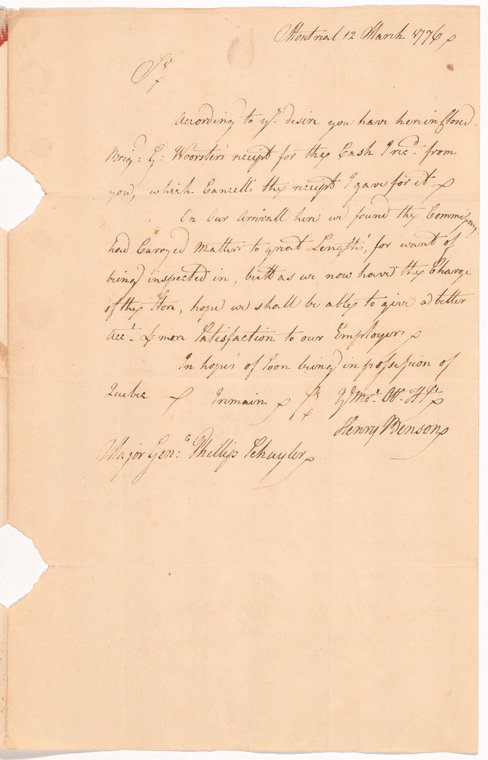 Montrial 12 March 1776
Sr.
According to yr. desire you have hereinclosed
Brigr. Gl. Woorster's reciept for the Cash I recd. from
you, which Cancells the receipt I gave for it
On our arrivall here we found the Commissary
had Carryed Matters to great Lengths, for want of
being inspected in, butt as we now have the Charge
of the Store, hope we shall be able to give a better
Acct. & more Satisfaction to our Employers
In hopes of Soon being in possession of
Quebec I remain Sr. Yr. Most. Obt. H St.
Henry Benson
Major Genll. Phillip Schuyler